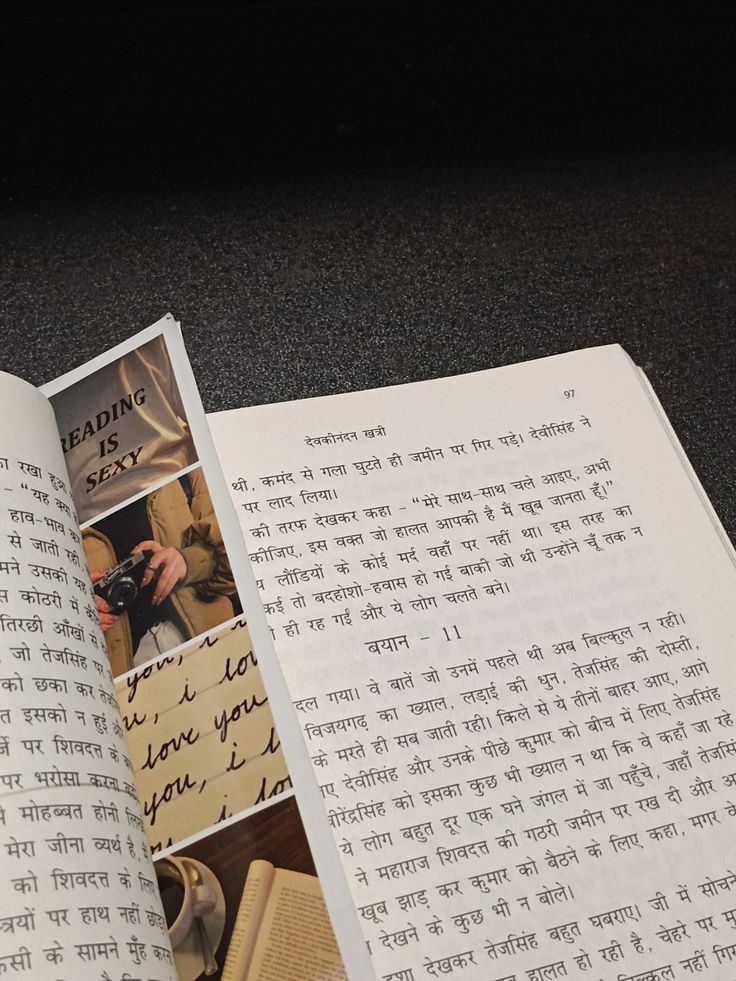 ा रखा हुआ
- “यह क्या
हाव-भाव क
से जाती रही
मने उसकी यह
स कोठरी में
तिरछी आँखों से
जो तेजसिंह पर
को छका कर तेज
त इसको न हुई
र्जे पर शिवदत्त के
पर भरोसा करना
मे मोहब्बत होनी
मेरा जीना व्यर्थ है,
को शिवदत्त के लि
त्रयों पर हाथ नहीं छोड़
कसी के सामने मुँह कर
READING
IS
SEXY
you, i
u, i lo
love you
you, i l
you, i lo
देवकीनंदन खत्री
97
थी, कमंद से गला घुटते ही जमीन पर गिर पड़े। देवीसिंह ने
पर लाद लिया।
की तरफ देखकर कहा - “मेरे साथ-साथ चले आइए, अभी
कीजिए, इस वक्त जो हालत आपकी है मैं खूब जानता हूँ।”
य लौंडियों के कोई मर्द वहाँ पर नहीं था। इस तरह का
कई तो बदहोशो-हवास हो गई बाकी जो थी उन्होंने चूँ तक न
ी ही रह गईं और ये लोग चलते बने।
बयान - 11
दल गया। वे बातें जो उनमें पहले थी अब बिल्कुल न रही।
विजयगढ़ का ख्याल, लड़ाई की धुन, तेजसिंह की दोस्ती,
के मरते ही सब जाती रही। किले से ये तीनों बाहर आए, आगे
ए देवीसिंह और उनके पीछे कुमार को बीच में लिए तेजसिंह
वीरेंद्रसिंह को इसका कुछ भी ख्याल न था कि वे कहाँ जा रहे
ये लोग बहुत दूर एक घने जंगल में जा पहुँचे, जहाँ तेजसिं
ने महाराज शिवदत्त की गठरी जमीन पर रख दी और अ
खूब झाड़ कर कुमार को बैठने के लिए कहा, मगर वे
देखने के कुछ भी न बोले।
दशा देखकर तेजसिंह बहुत घबराए। जी में सोचने
हालत हो रही है, चेहरे पर मु
बिल्कुल नहीं गिर